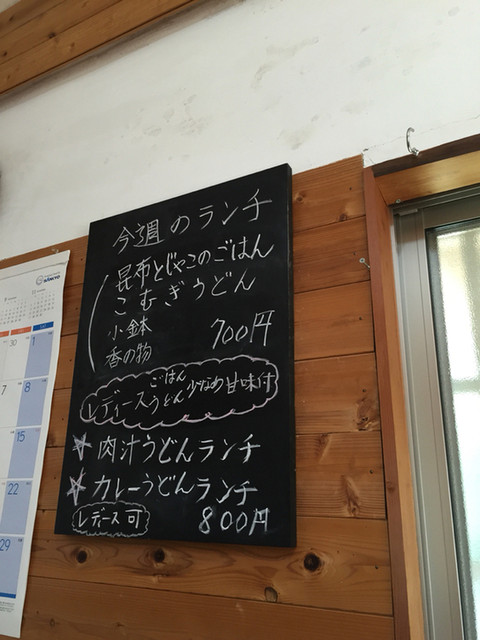 今週のランチ
昆布とじゃこのごはん
こむぎうどん
小鉢
香の物
700円
レディース ごはん うどん 少なめ 甘味付
☆ 肉汁うどんランチ
☆ カレーうどんランチ
レディース可
800円
30
1
7
8
15
22
29